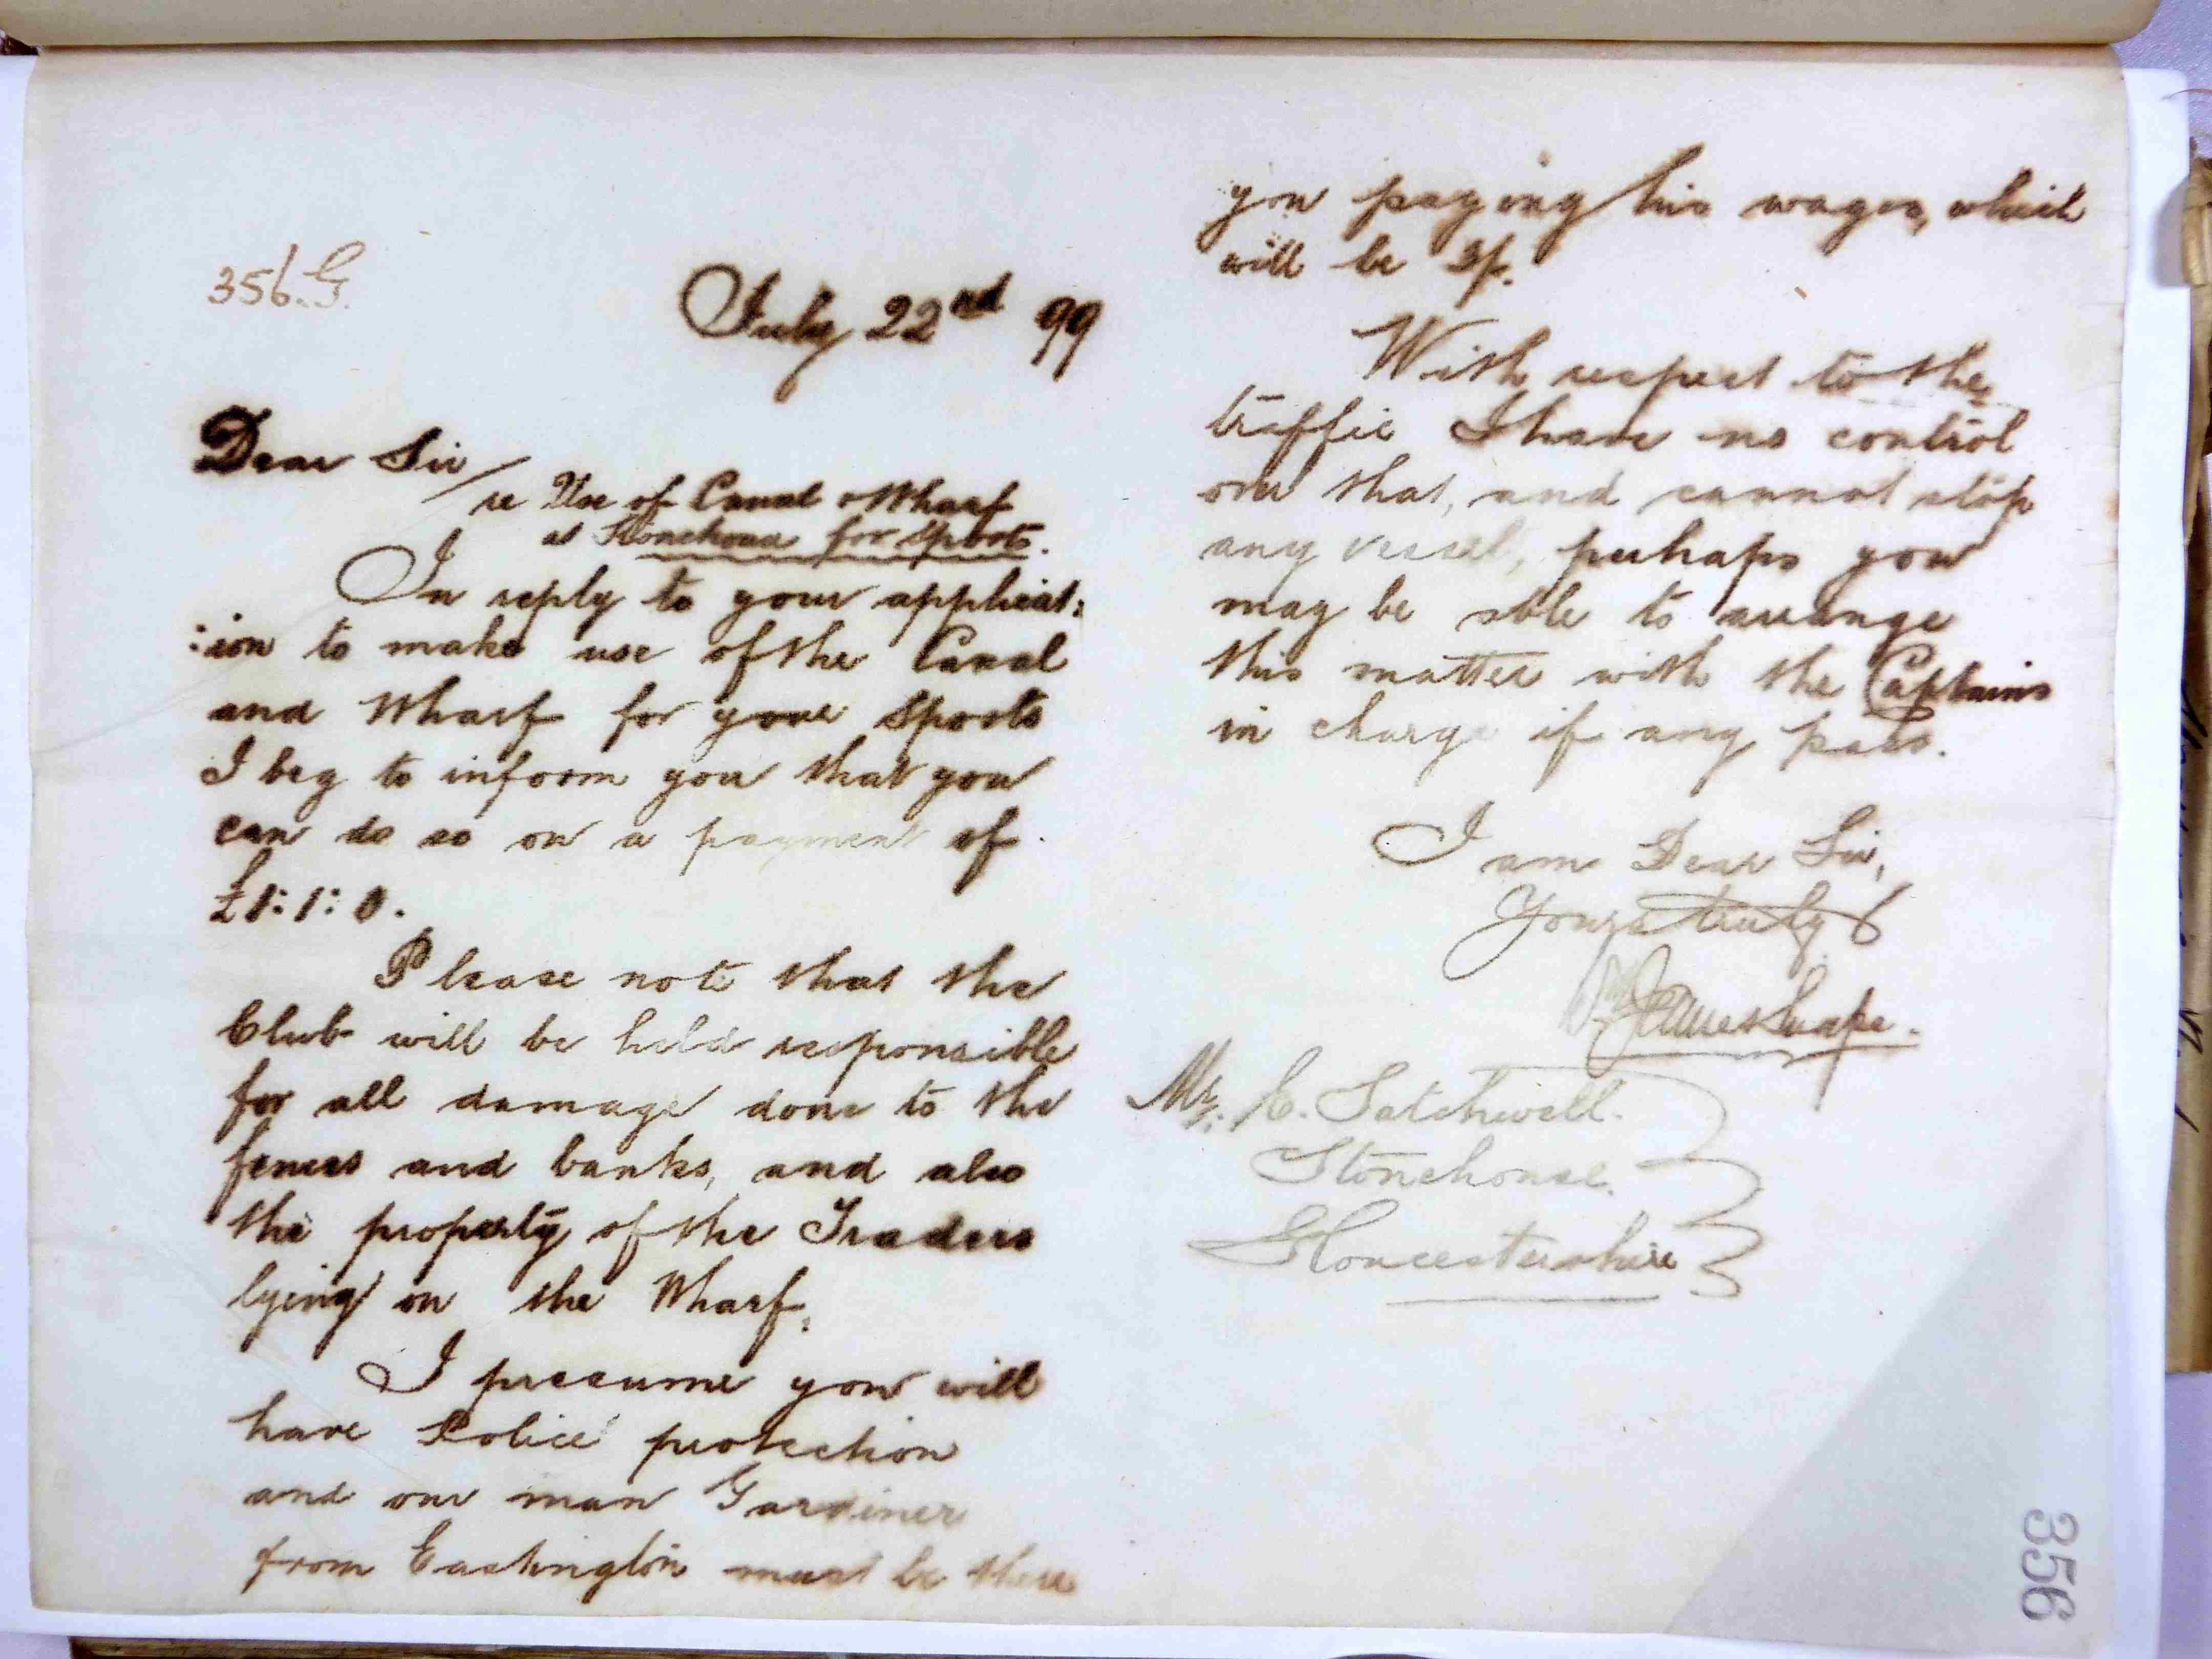 356.G.
July 22nd 99
Dear Sir/
re Use of Canal & Wharf
at Stonehouse for Sports.
In reply to your applicat:
:ion to make use of the Canal
and Wharf for your Sports
I beg to inform you that you
can do so on a payment of
£1:1:0.
Please note that the
Club will be held responsible
for all damage done to the
fences and banks, and also
the property of the Traders
lying on the Wharf.
I presume you will
have Police protection
and our man Gardiner
from Eastington must be there
you paying his wages, which
will be 3/-.
With respect to the
traffic I have no control
over that, and cannot stop
any vessel, perhaps you
may be able to arrange
this matter with the Captains
in charge if any pass.
I am Dear Sir,
Yours truly
Snape.
Mr. C. Satchwell.
Stonehouse.
Gloucestershire
356